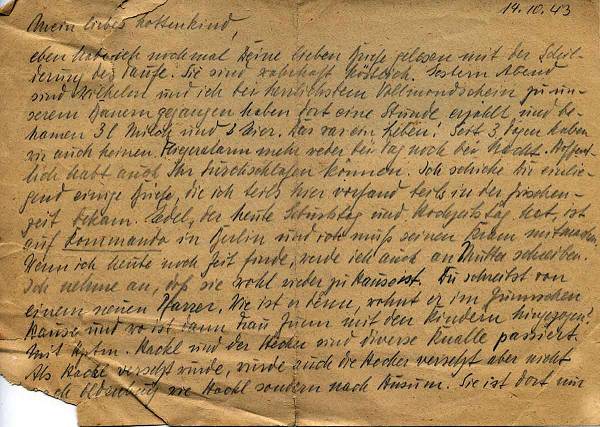 14.10.43
Mein liebes Lottenkind,
eben habe ich nochmal Deine lieben Briefe gelesen mit der Schil-
derung der Taufe. Sie sind wahrhaft köstlich. Gestern Abend
sind Wilhelm und ich bei herrlichstem Vollmondschein zu un-
serem Bauern gegangen haben dort eine Stunde erzählt und be-
kamen 3 l Milch und 3 Eier. Das war ein Leben! Seit 3 Tagen haben
wir auch keinen Fliegeralarm mehr weder bei Tag noch bei Nacht. Hoffent-
lich habt auch Ihr durchschlafen können. Ich schicke Dir einlie-
gend einige Briefe, die ich teils hier vorfand teils in der Zwischen-
zeit bekam. Edel, der heute Geburtstag und Hochzeitstag hat, ist
auf Kommando in Berlin und ich muß seinen Kram mitmachen.
Wenn ich heute noch Zeit finde, werde ich auch an Mutter schreiben.
Ich nehme an, daß sie wohl wieder zu Hause ist. Du schreibst von
einem neuen Pfarrer. Wie ist er denn, wohnt er im Grimmschen
Hause und wo ist dann Frau mit den Kindern hingegangen?
Mit Hptm. Hackl und der Hecker sind diverse Knalle passiert.
Als Hackl versetzt wurde, wurde auch die Hecker versetzt aber nicht
nach Oldenburg wie Hackl sondern nach Husum. Sie ist dort nur